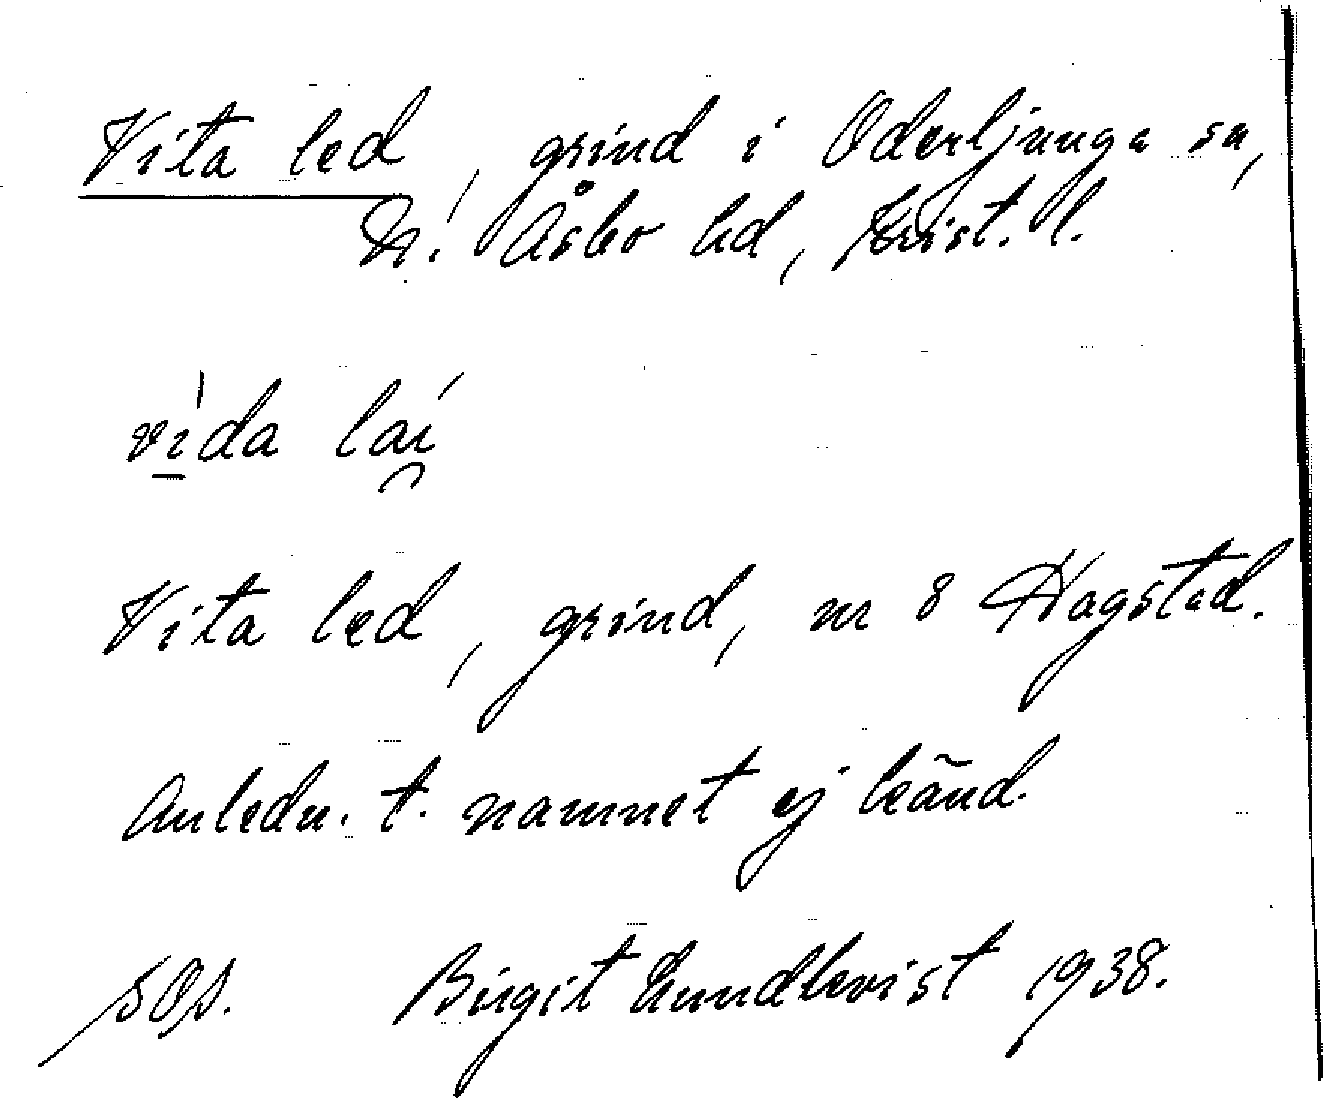 Vita led, grind i Oderljunga sn,
N. Åsbo hd, Krist. l.
vida lai
Vita led, grind, nr 8 Hagstad.
Anledn. t. namnet ej känd.
Birgit Lundkvist 1938.